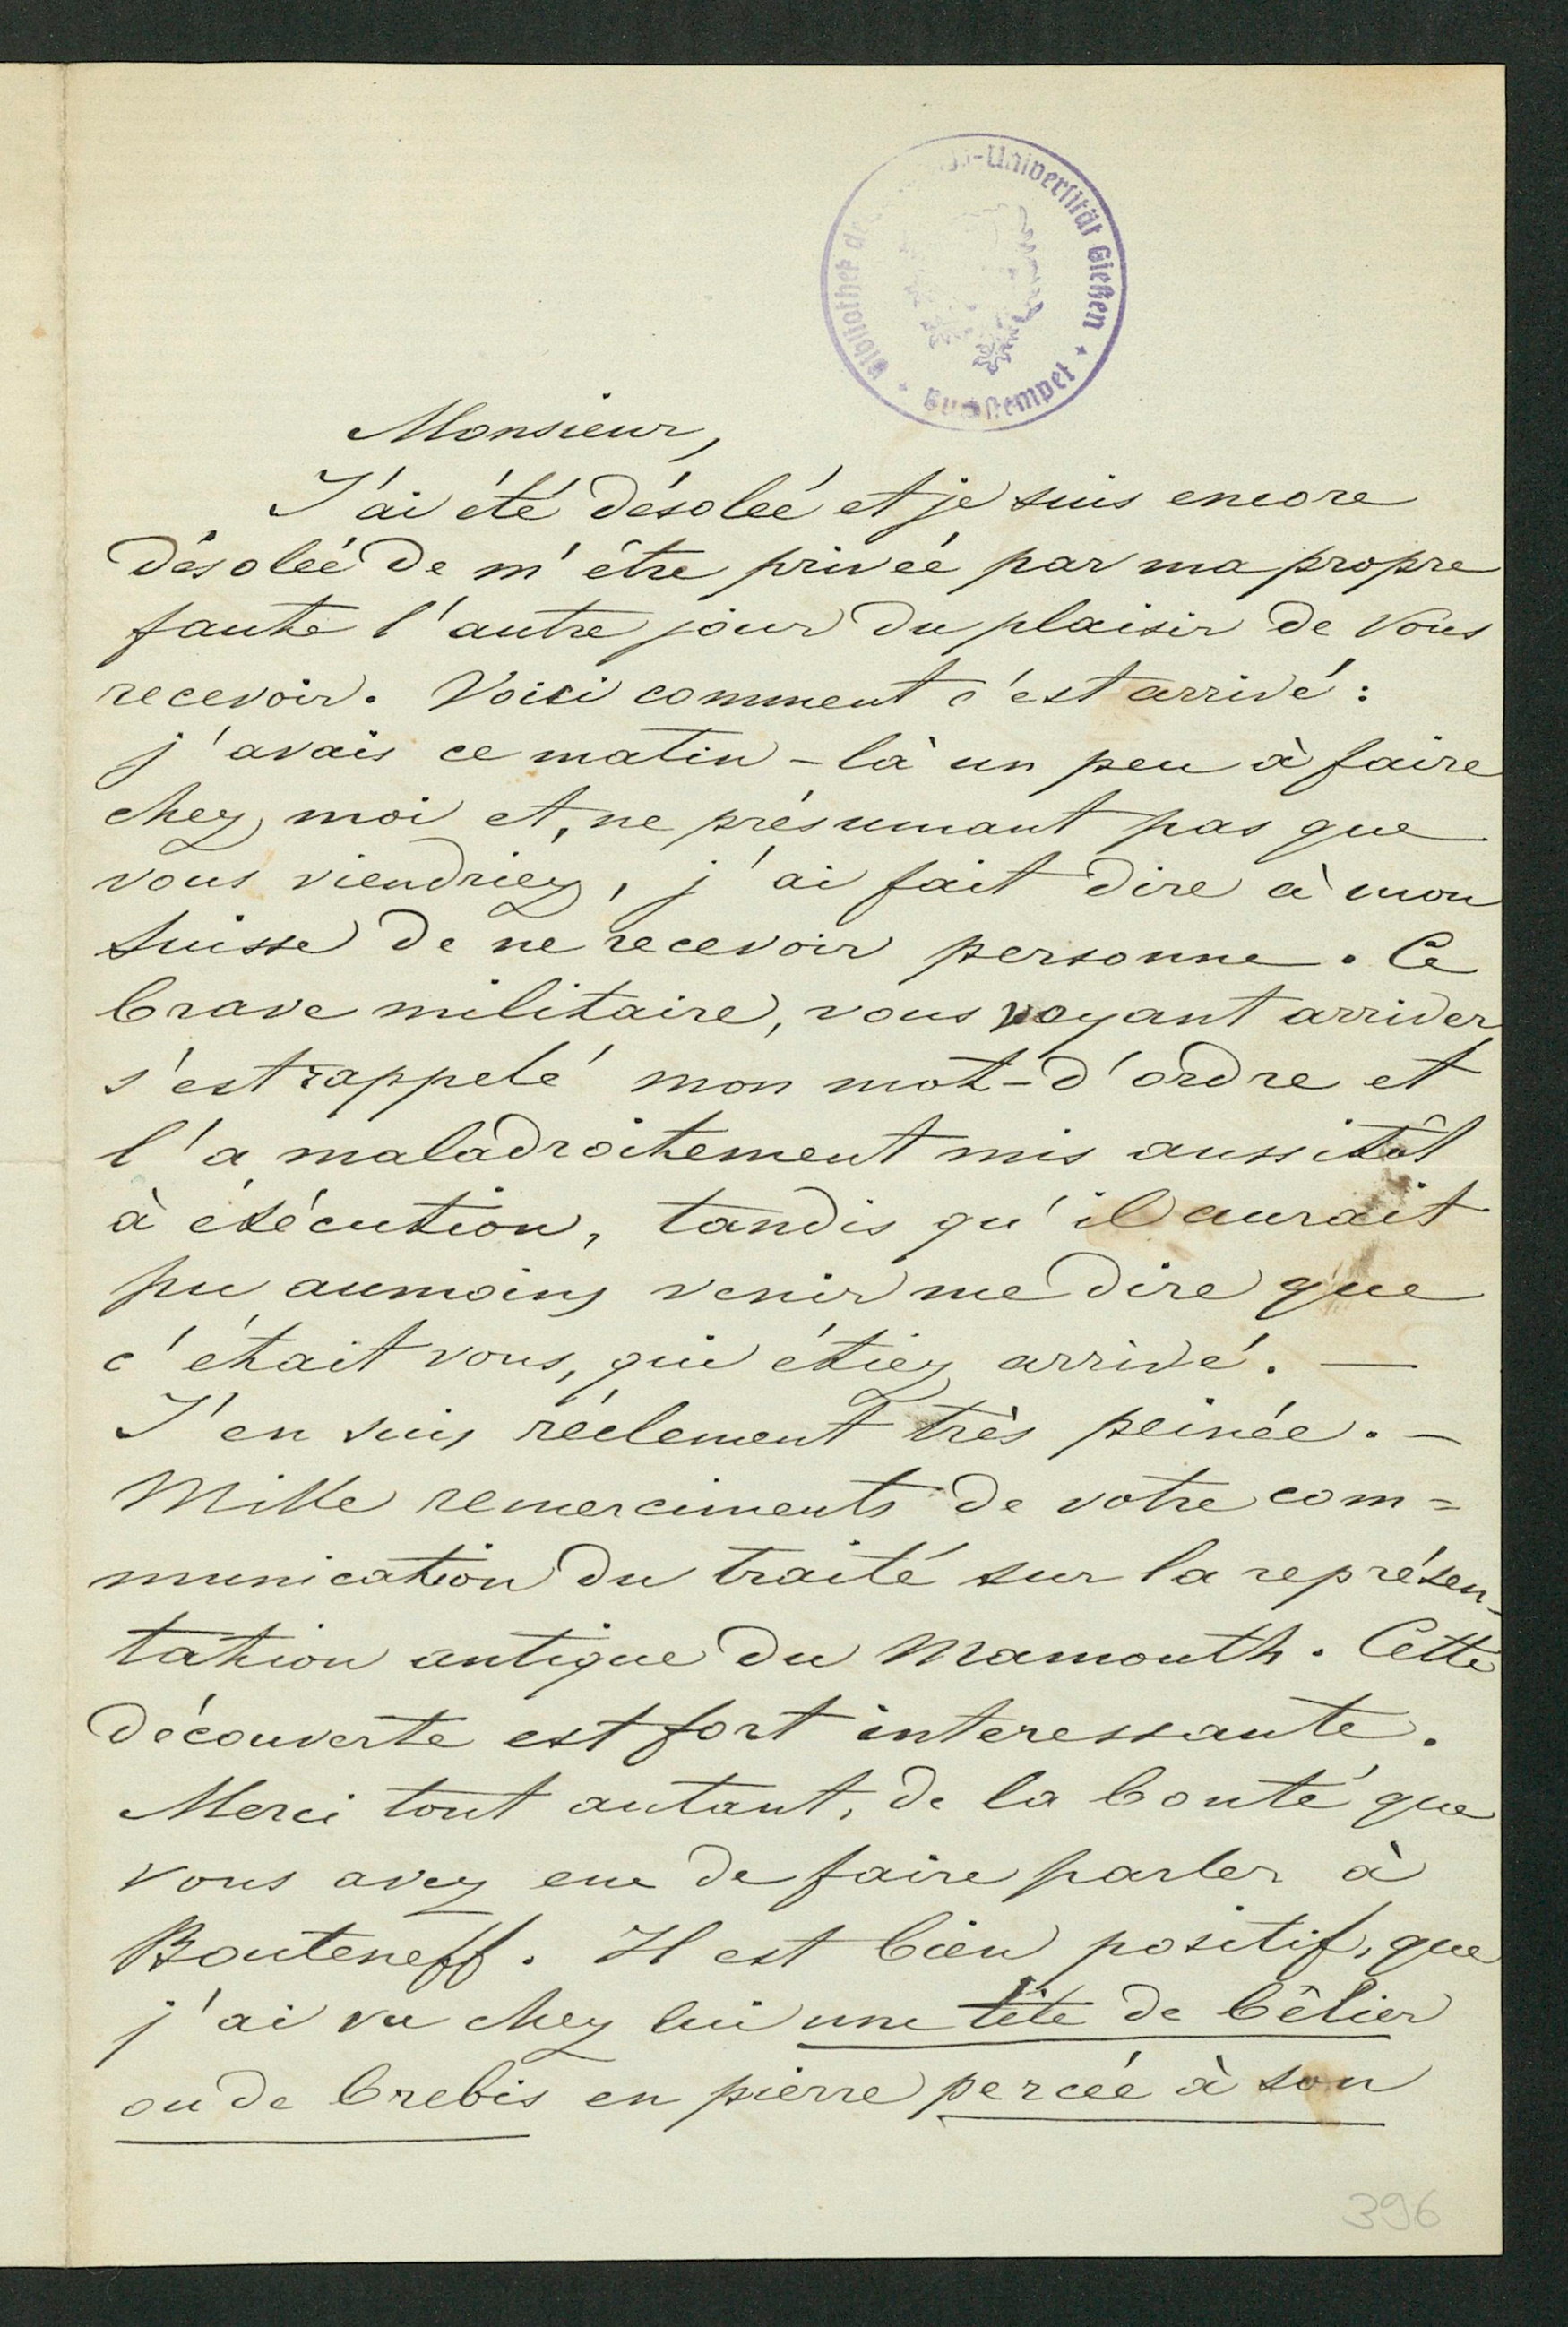 Bibliothek de
-Universität Gießen
stempel
Monsieur,
J'ai été désoleé et je suis encore
désoleé de m'être priveé par ma propre
faute l'autre jour du plaisir de vous
recevoir. Voici comment c'est arrivé:
j'avais ce matin-là un peu à faire
chez moi et, ne présumant pas que
vous viendriez, j'ai fait dire à mon
suisse de ne recevoir personne. Ce
brave militaire, vous voyant arriver,
s'est rappelé mon mot-d'ordre et
l'a maladroitement mis aussitôt
à éxécution, tandis qu'il aurait
pu aumoins venir me dire que
c'était vous, qui étiez arrivé. —
J'en suis réelement très peinée. —
Mille remerciments de votre com=
munication du traité sur la représen-
tation antique du Mamouth. Cette
découverte est fort interessante.
Merci tout autant, de la bonté que
vous avez eue de faire parler à
Bouteneff. Il est bien positif, que
j'ai vu chez lui une tête de bêlier
ou de brebis en pierre perceé à son
396